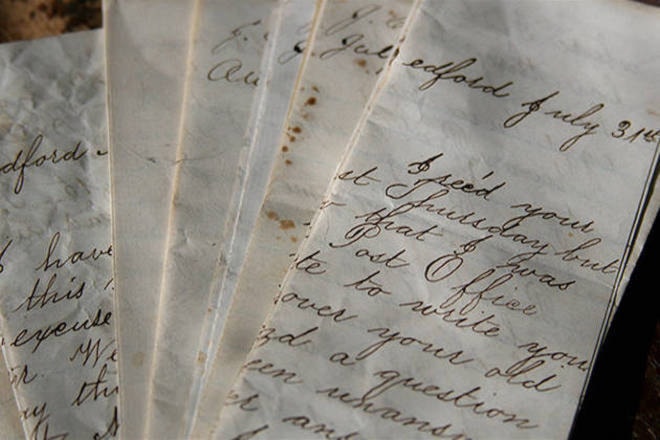 dford
I have
this
excuse
r. We
ay thi
Au
Jul
edford July 31st
I rec'd your
st Thursday but
that I was
Post Office
te to write you
over your old
nd a question
een unansw
er an